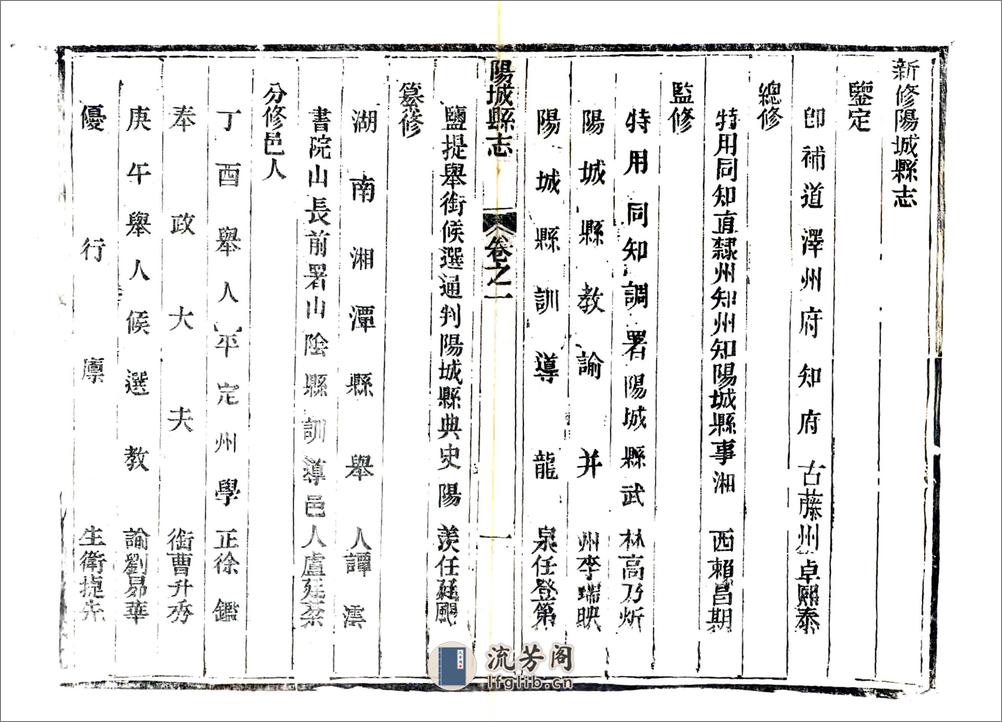 新修陽城縣志
鑒定
卽補道澤州府知府古藤州卓熙泰
總修
特用同知直隸州知州知陽城縣事湘西賴昌期
監修
特用同知調署陽城縣武林高乃炘
陽城縣教諭并州李瑞映
陽城縣訓導龍泉任登第
陽城縣志
卷之一
一
鹽提舉銜候選通判陽城縣典史陽羨任廷颺
纂修
湖南湘潭縣舉人譚澐
書院山長前署山陰縣訓導邑人盧廷棻
分修邑人
丁酉舉人平定州學正徐鑑
奉政大夫銜曹升秀
庚午舉人候選教諭劉昜華
優行廩生衛捷先
流芳阁
lfglib.cn